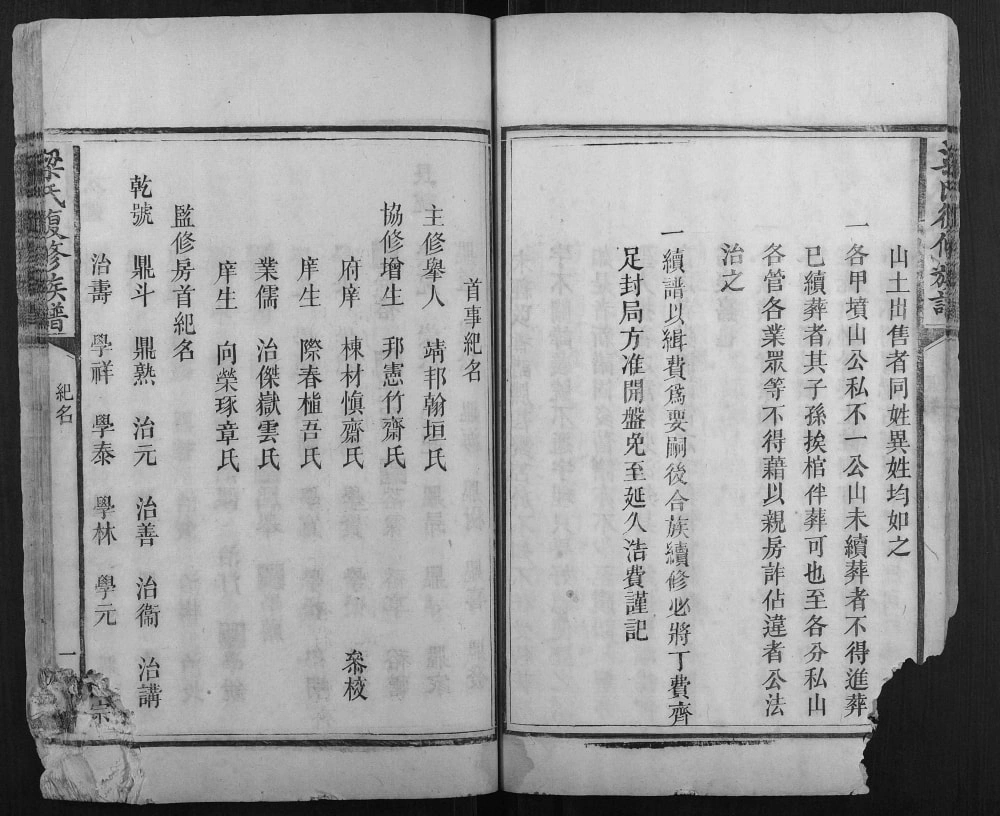 梁氏復修族譜
山土出售者同姓異姓均如之
一各甲墳山公私不一公山未續葬者不得進葬
已續葬者其子孫挨棺伴葬可也至各分私山
各管各業眾等不得藉以親房詐佔違者公法
治之
一續譜以緝費爲要嗣後合族續修必將丁費齊
足封局方准開盤免至延久浩費謹記
首事紀名
主修舉人 靖邦翰垣氏
協修增生 邦憲竹齋氏
府庠 棟材慎齋氏 叅校
庠生 際春植吾氏
業儒 治傑嶽雲氏
庠生 向榮琢章氏
監修房首紀名
乾號 鼎斗 鼎熟 治元 治善 治衞 治講
治壽 學祥 學泰 學林 學元
梁氏復修族譜 紀名 一 宗